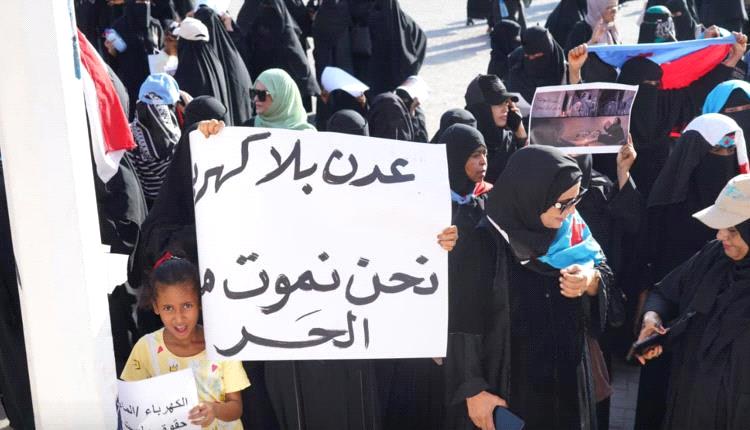 عدن بلا كهرب
نحن نموت م
الحَر
الكهرباء /الما
حقوق